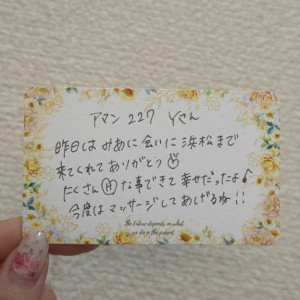 アマン 227 Yさん
昨日はみあに会いに浜松まで
来てくれてありがとう
たくさんHな事できて幸せだったよ♪
今度はマッサージしてあげるね!!
the future depends on what
we do in the present